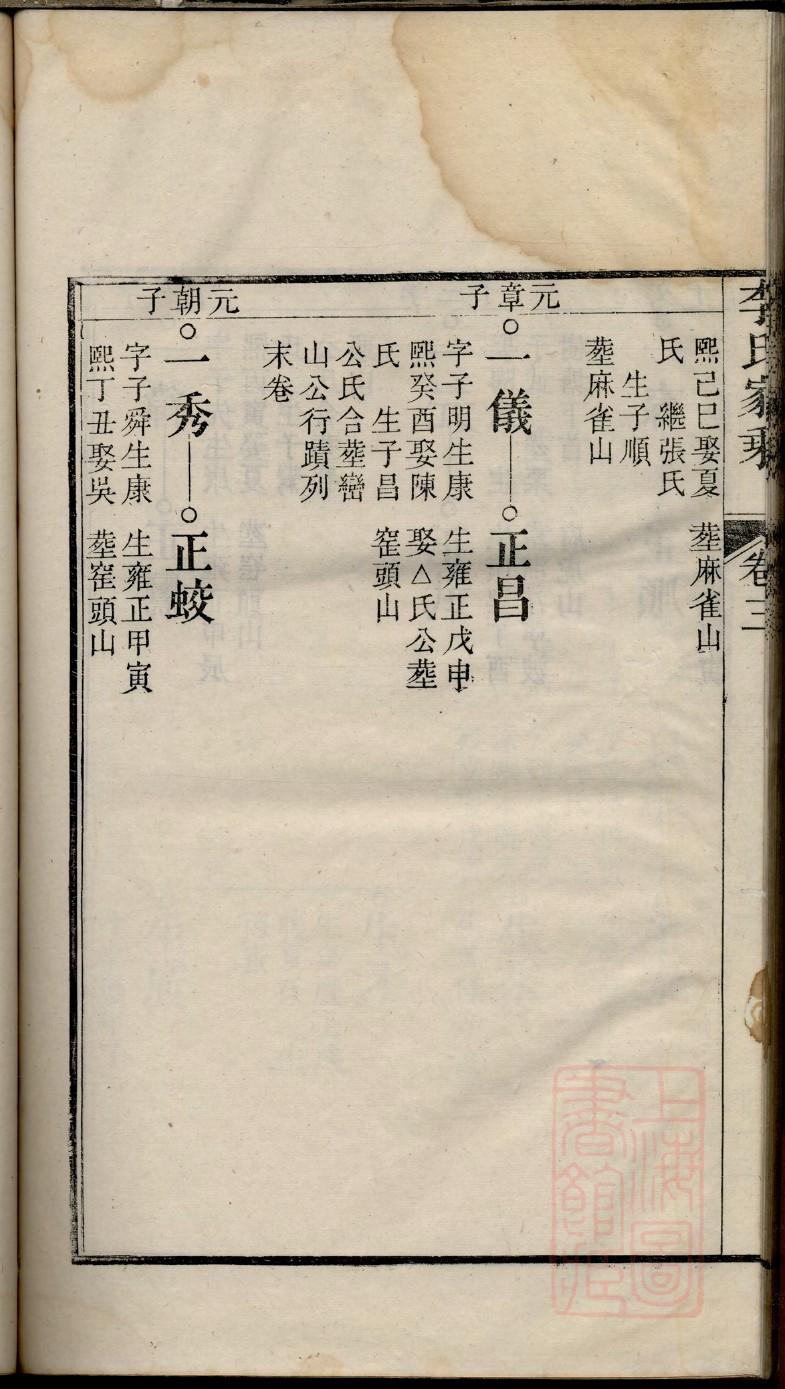 李氏家乘
卷三
熙己巳娶夏
氏 繼張氏
生子順
塟麻雀山
塟麻雀山
元章子
○一儀——○正昌
字子明生康
熙癸酉娶陳
氏 生子昌
公氏合塟巒
山公行蹟列
末卷
生雍正戊申
娶△氏公塟
窰頭山
元朝子
○一秀——○正蛟
字子舜生康
熙丁丑娶吳
生雍正甲寅
塟窰頭山
上海圖
書館藏